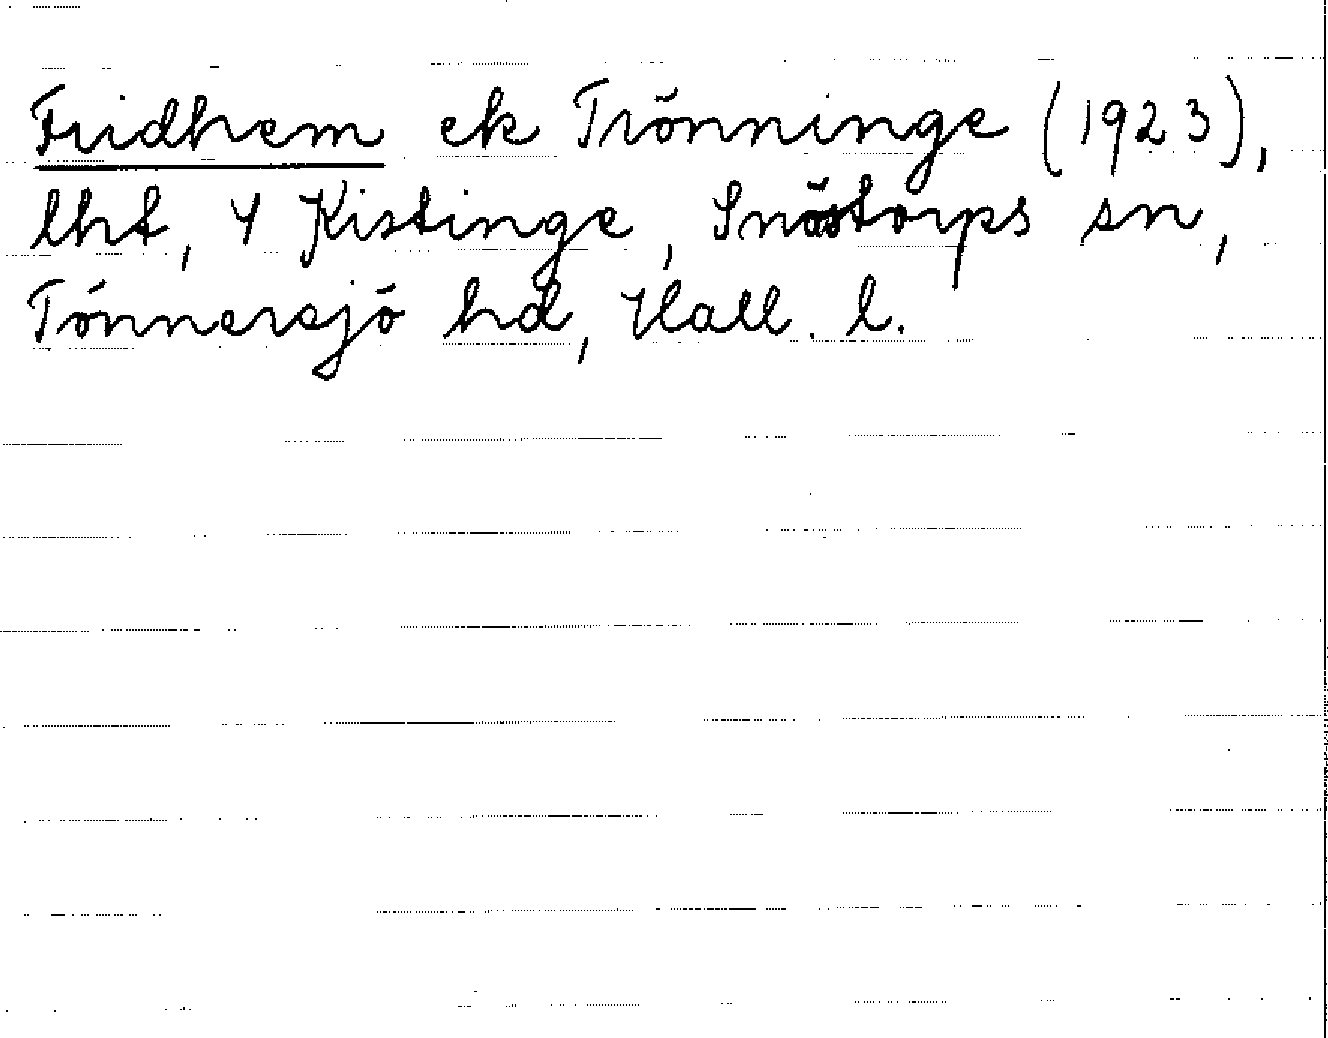 Fridhem ek Trönninge (1923),
lht, 4 Kistinge, Snöstorps sn,
Tönnersjö hd, Hall. l.